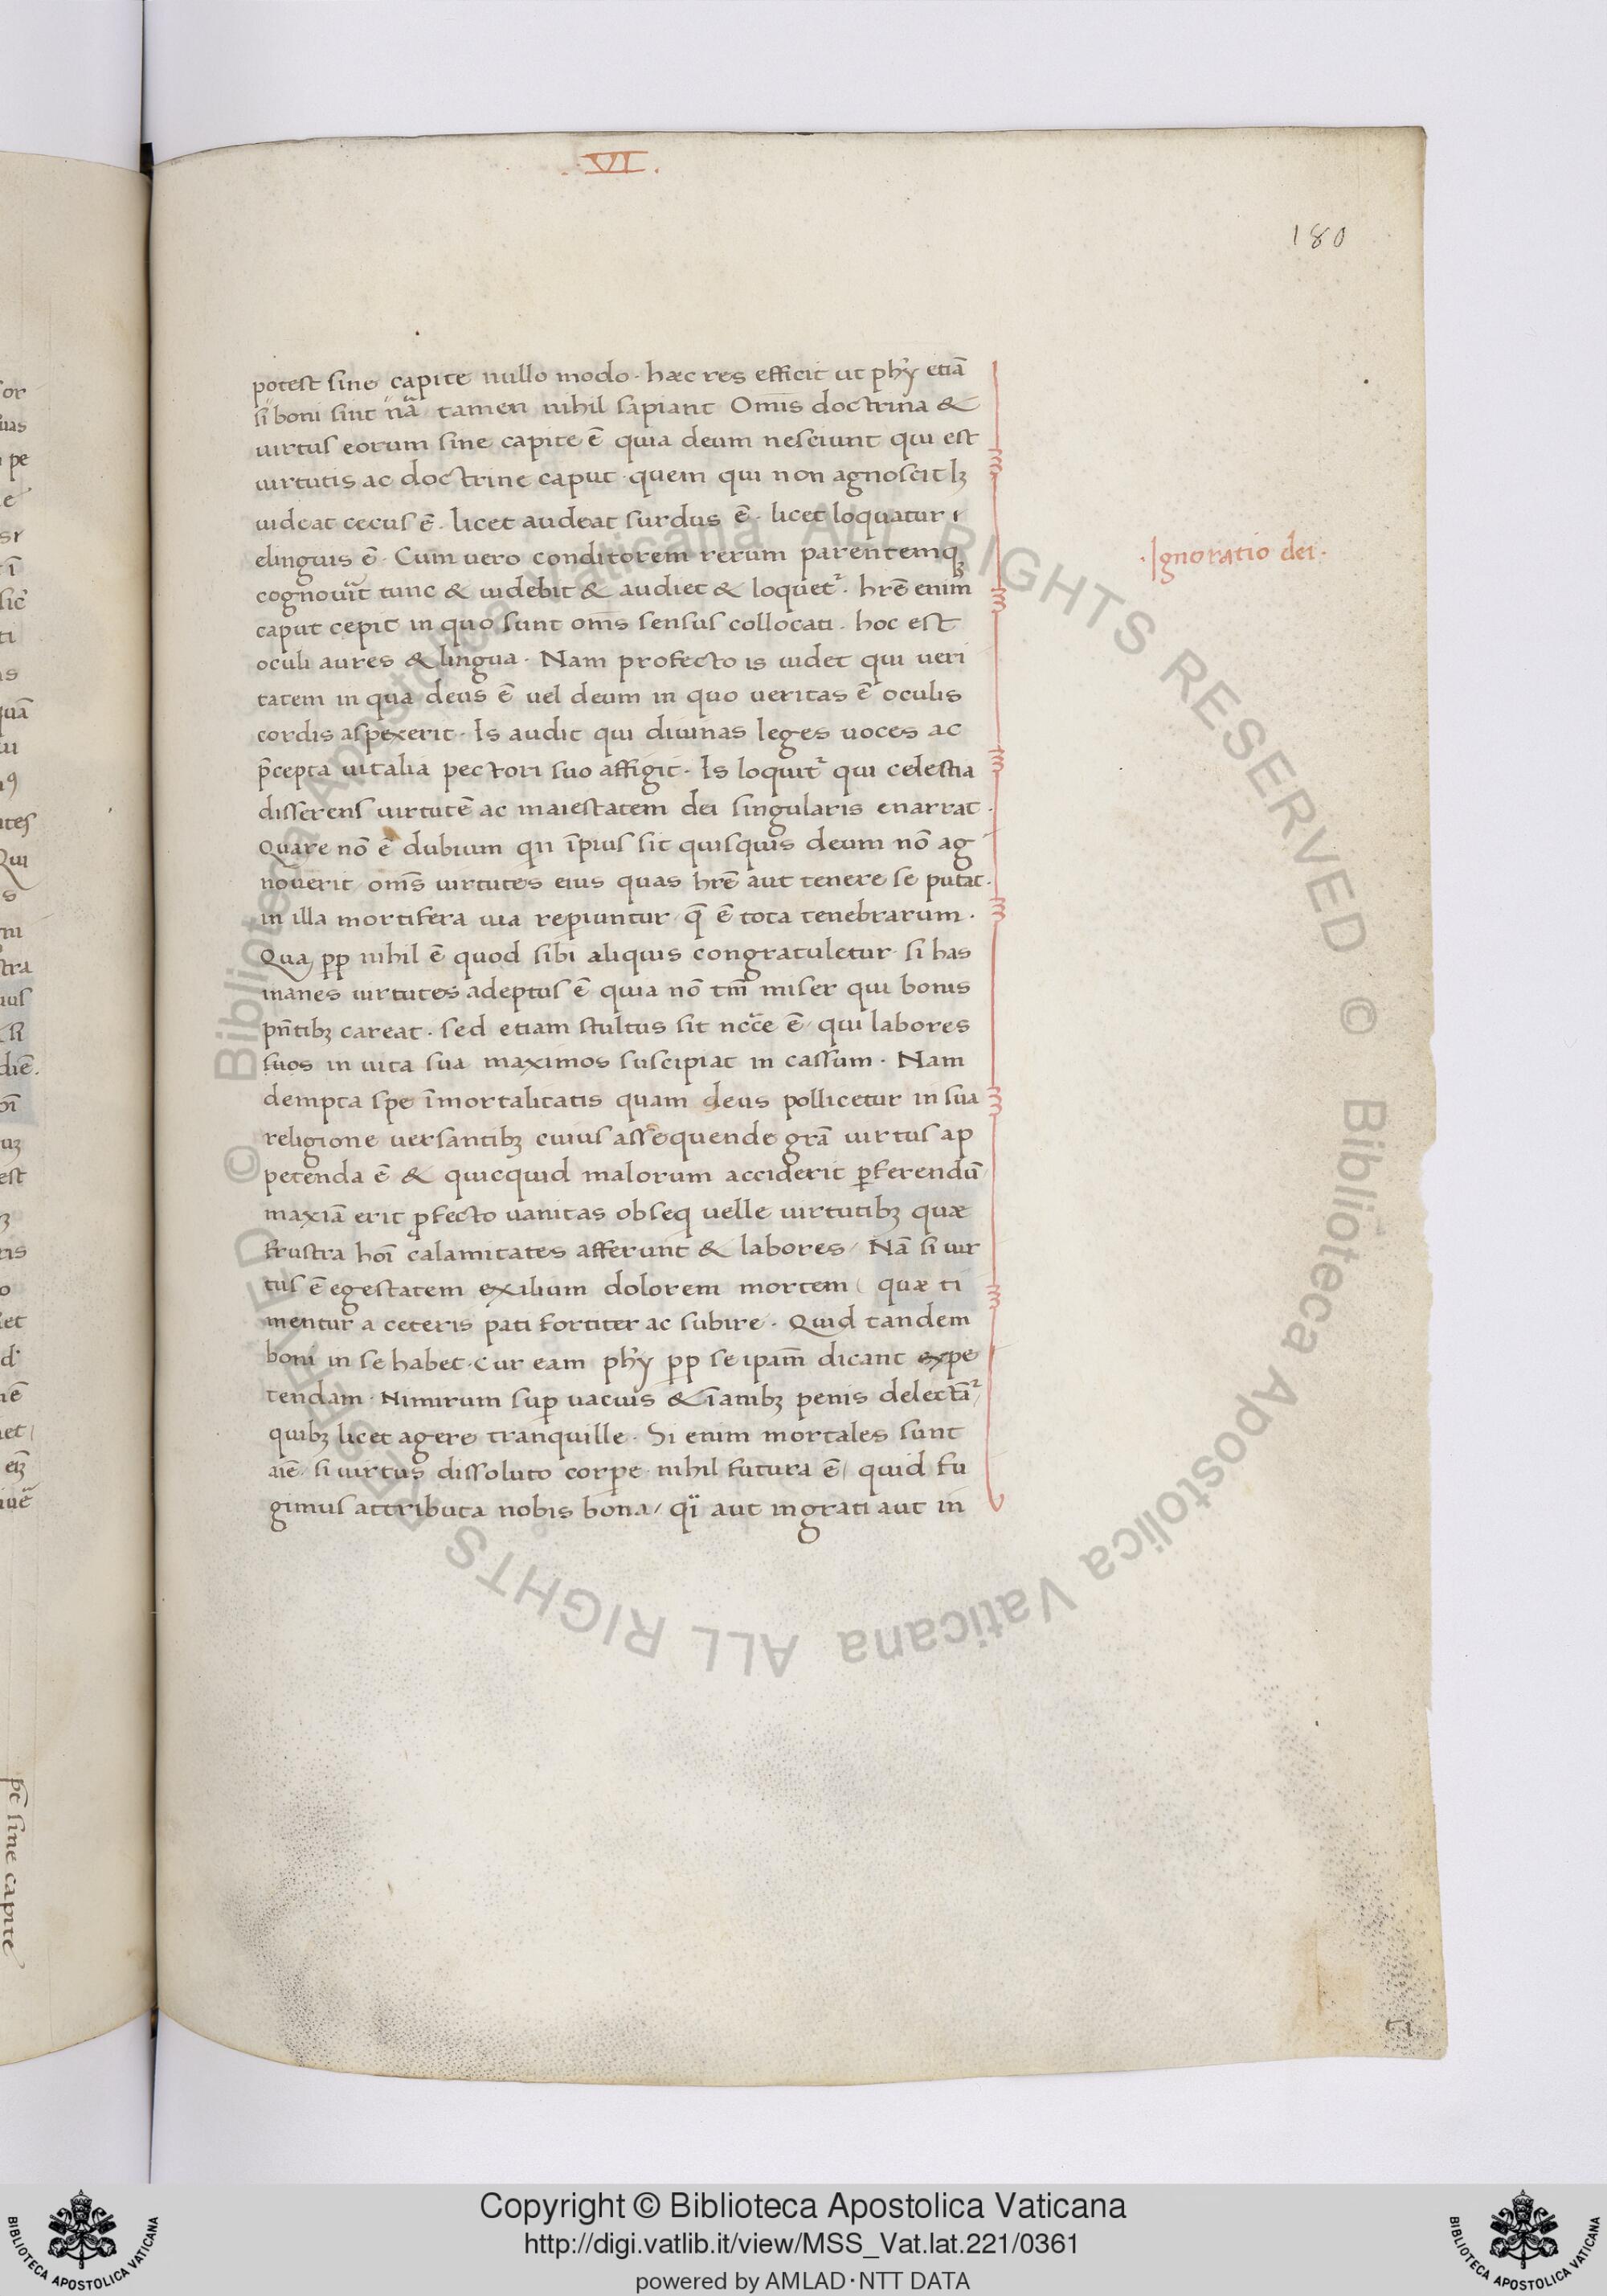 .VI.
180
potest sine capite nullo modo · hæc res efficit ut phỹ etiã
si boni sint nã tamen nihil sapiant Omīs doctrina &
uirtus eorum sine capite ē quia deum nesciunt qui est
uirtutis ac doctrine caput · quem qui non agnoscit lꝫ
uideat cecus ē · licet audeat surdus ē · licet loquatur
elinguis ē · Cum uero conditorem rerum parentemqꝫ
cognouit̃ tunc & uidebit & audiet & loquet᷑ · hr̄e enim̄
caput cepit in quo sunt om̄s sensus collocati · hoc est
oculi aures & lingua · Nam profecto is uidet qui ueri
tatem in qua deus ē uel deum in quo ueritas ē oculis
cordis aspexerit · Is audit qui diuinas leges uoces ac
p̄cepta uitalia pectori suo affigit · Is loquit᷑ qui celestia
disserens uirtutē ac maiestatem dei singularis enarrat ·
Quare nō ē dubium qn īpius sit quisquis deum nō ag
nouerit / om̄s uirtutes eius quas hr̄e aut tenere se putat ·
in illa mortifera uia repiuntur q̄ ē tota tenebrarum ·
Qua pp nihil ē quod sibi aliquis congratuletur · si has
inanes uirtutes adeptus ē quia nō tm̄ miser qui bonis
pn̄tibꝫ careat · sed etiam stultus sit ncc̄e ē / qui labores
suos in uita sua maximos suscipiat in cassum · Nam
dempta spe īmortalitatis quam deus pollicetur in sua
religione uersantibꝫ cuius assequende grã uirtus ap
petenda ē & quicquid malorum acciderit ꝑferendū
maxiā erit ꝓfecto uanitas obseq uelle uirtutibꝫ quæ
frustra hoī calamitates afferunt & labores / Nã si uir
tus ē egestatem exilium dolorem mortem / quæ ti
mentur a ceteris pati fortiter ac subire · Quid tandem
boni in se habet · cur eam phỹ pp se ipam̄ dicant expe
tendam · Nimirum suꝑ uacuis & īanibꝫ penis delectāt᷑ /
quibꝫ licet agere tranquille · Si enim mortales sunt
aīe · si uirtus dissoluto corpe nihil futura ē / quid fu
gimus attributa nobis bona / qĭ aut ingrati aut in
·Ignoratio dei·
© Biblioteca Apostolica Vaticana ALL RIGHTS RESERVED © Biblioteca Apostolica Vaticana ALL RIGHTS RESERVED
Copyright © Biblioteca Apostolica Vaticana
http://digi.vatlib.it/view/MSS_Vat.lat.221/0361
powered by AMLAD·NTT DATA
BIBLIOTECA APOSTOLICA VATICANA
BIBLIOTECA APOSTOLICA VATICANA